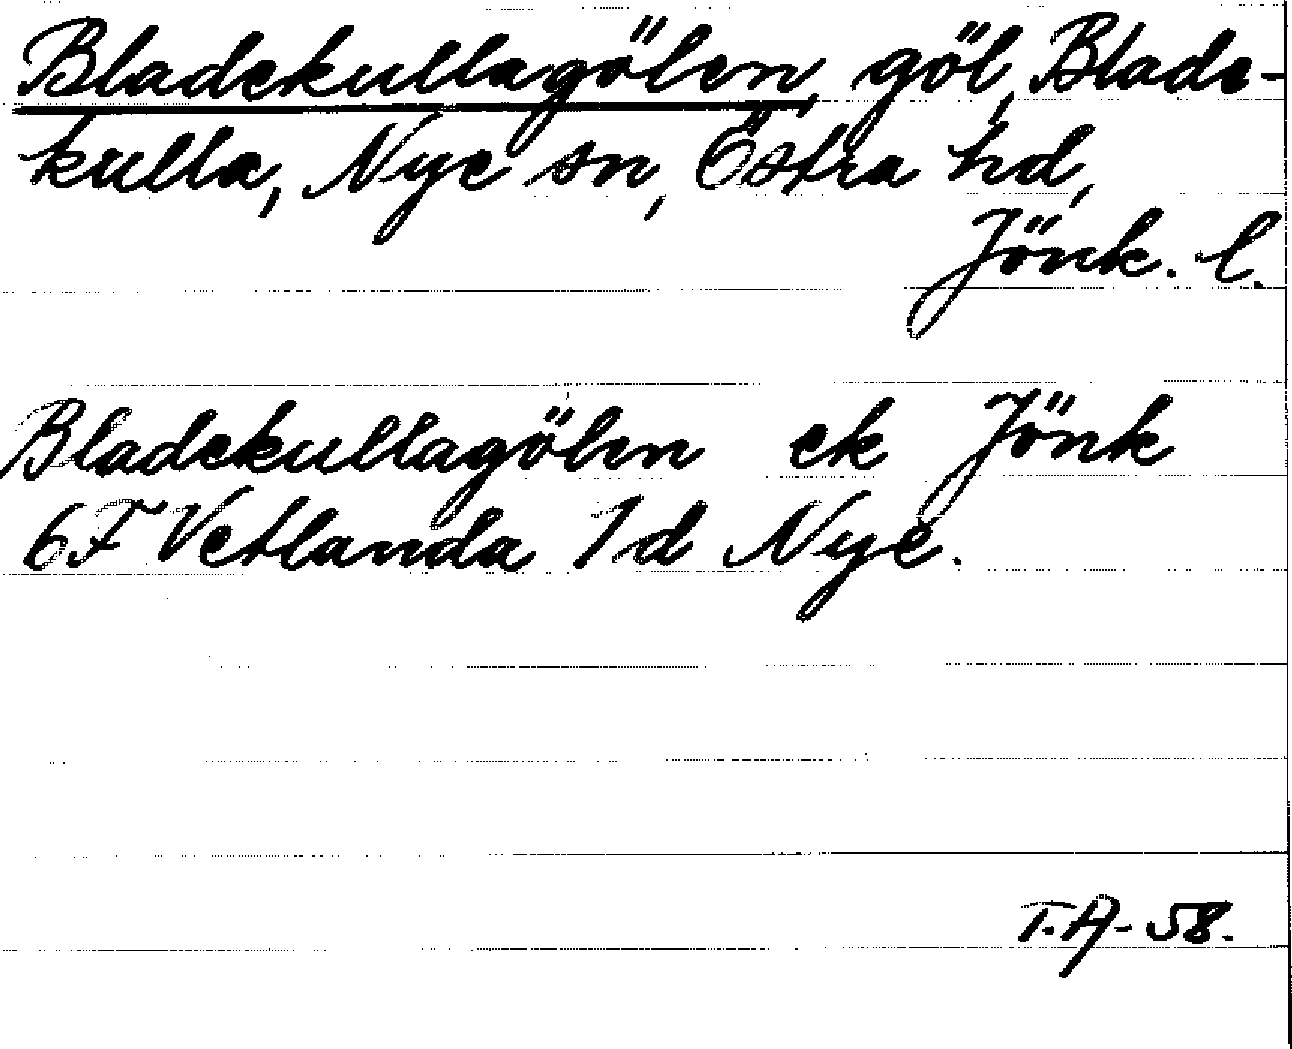 Bladekullagölen, göl, Blade-
kulla, Nye sn, Östra hd,
Jönk. l.
Bladekullagölen ek Jönk
6F Vetlanda 1d Nye.
T.A-58.